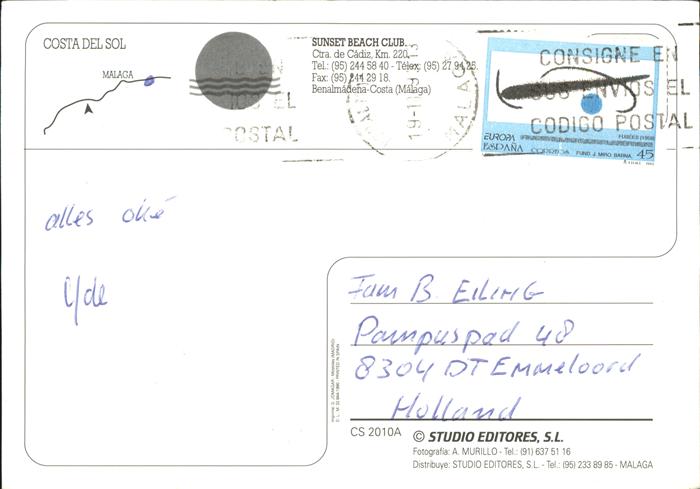 COSTA DEL SOL
MALAGA
SUNSET BEACH CLUB.
Ctra. de Cádiz, Km. 220,
Tel.: (95) 244 58 40 - Télex: (95) 27 94 25.
Fax: (95) 241 29 18.
Benalmádena-Costa (Málaga)
EL
POSTAL
MALAGA
CONSIGNE EN
SUS ENVIOS EL
CODIGO POSTAL
EUROPA
ESPAÑA
CORREOS
FUND. J. MIRO. BARNA.
45
alles oké
Yde
Fam B. EILING
Pampuspad 48
8304 DT Emmeloord
Holland
CS 2010A
© STUDIO EDITORES, S.L.
Fotografía: A. MURILLO - Tel.: (91) 637 51 16
Distribuye: STUDIO EDITORES, S.L. - Tel.: (95) 233 89 85 - MALAGA